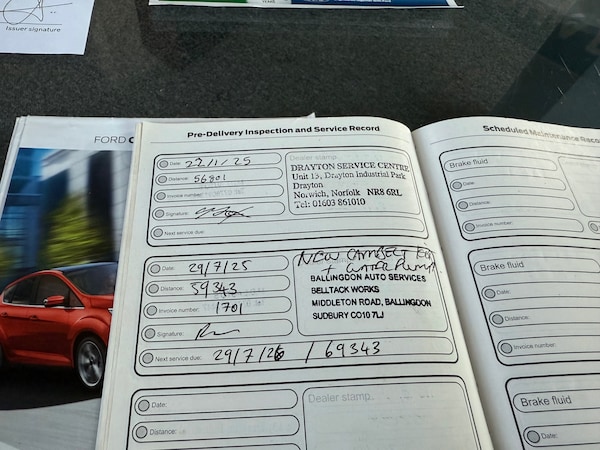 Issuer signature
FORD C
Pre-Delivery Inspection and Service Record
Date: 22/1/25
Distance: 56801
Invoice number:
Signature:
Next service due:
Dealer stamp:
DRAYTON SERVICE CENTRE
Unit 15, Drayton Industrial Park
Drayton
Norwich, Norfolk NR8 6RL
Tel: 01603 861010
Date: 29/7/25
Distance: 59343
Invoice number: 1701
Signature:
Next service due: 29/7/26 / 69343
NEW CAMBELT KIT
+ WATER PUMP.
BALLINGDON AUTO SERVICES
BELLTACK WORKS
MIDDLETON ROAD, BALLINGDON
SUDBURY CO10 7LJ
Date:
Distance:
Dealer stamp:
Scheduled Maintenance Reco
Brake fluid
Date:
Distance:
Invoice number:
Brake fluid
Date:
Distance:
Invoice number:
Brake fluid
Date: